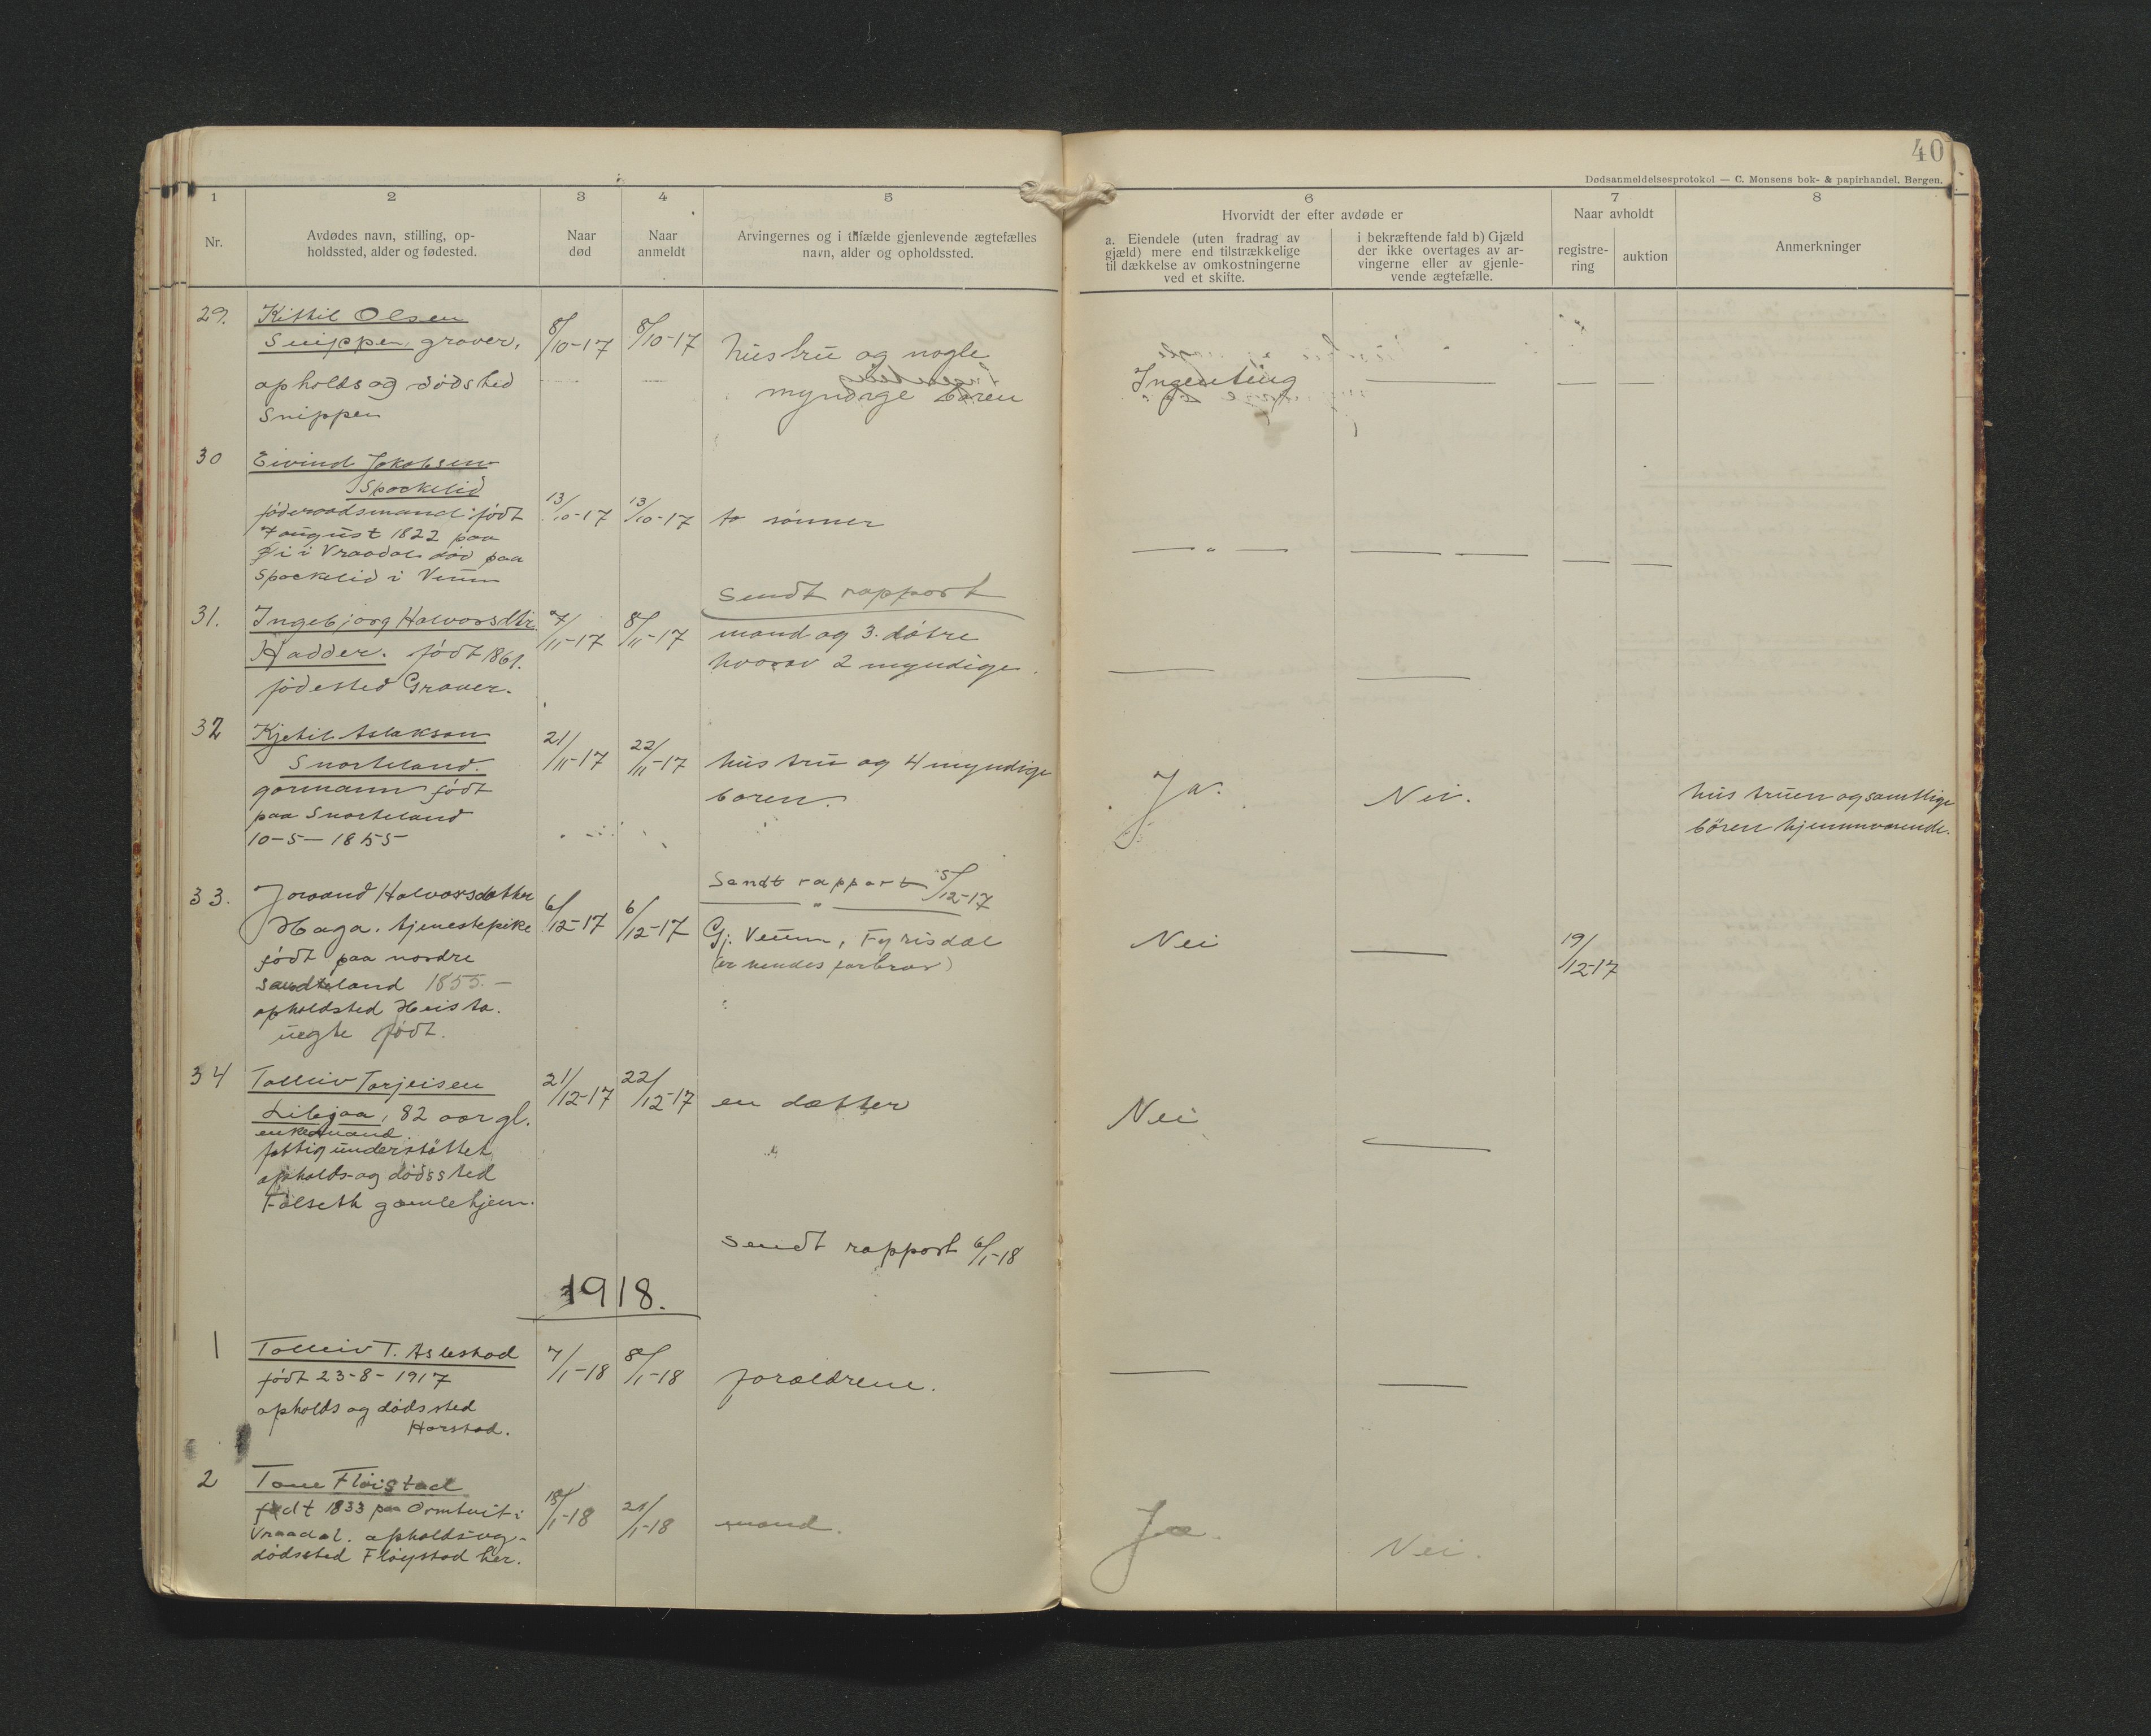 40
Dødsanmeldelsesprotokol — C. Monsens bok- & papirhandel, Bergen.
1 2 3 4 5 6 7 8
Nr.
Avdødes navn, stilling, op-
holdssted, alder og fødested.
Naar
død
Naar
anmeldt
Arvingernes og i tilfælde gjenlevende ægtefælles
navn, alder og opholdssted.
Hvorvidt der efter avdøde er
a. Eiendele (uten fradrag av
gjæld) mere end tilstrækkelige
til dækkelse av omkostningerne
ved et skifte.
i bekræftende fald b) Gjæld
der ikke overtages av ar-
vingerne eller av gjenle-
vende ægtefælle.
Naar avholdt
registre-
ring
auktion
Anmerkninger
29. Kittil Olsen
Snippen, graver,
opholds og dødsted
Snippen
8/10-17 8/10-17
hustru og nogle
myndige børen
Ingenting — — —
30 Eivind Jakobsen
Spockelid
føderaadsmand født
7 august 1822 paa
i Vraadal død paa
Spockelid i Veum
13/10-17 13/10-17 to sønner
— " — — — — —
Sendt rapport
31. Ingebjørg Halvorsdtr
Hadder. født 1861.
fødested Graver.
7/11-17 8/11-17
mand og 3. døtre
hvorav 2 myndige.
— —
32 Kjetil Aslakson
Snarteland.
gormann født
paa Snarteland
10-5-1855
21/11-17 22/11-17
hustru og 4 myndige
boren.
Ja. Nei.
hustruen og samtlige
børen hjemmværende.
Sendt rapport 5/12-17
— " —
33. Joraand Halvorsdatter
Haga. tjenestepike
født paa nordre
Sandland 1855.-
opholdsted Heisto.
uegte født.
6/12-17 6/12-17
Gj. Veum, Fyrisdal
(er hendes farbror)
Nei — 19/12-17
34 Tolleiv Tarjeisen
Libejaa, 82 aar gl.
enkemand.
fattigunderstøttet
opholds-og dødssted
Følseth gamlehjem.
21/12-17 22/12-17 en datter
Nei —
Sendt rapport 6/1-18
1918.
1 Tolleiv T. Aslestad
født 23-8-1917
opholds og dødssted
Harstad.
7/1-18 8/1-18 foraeldrene.
— —
2 Tone Fløistad
født 1833 paa Ormtveit i
Vraadal. opholds-og-
dødssted Fløystad her.
18/1-18 21/1-18 mand.
Ja. Nei.